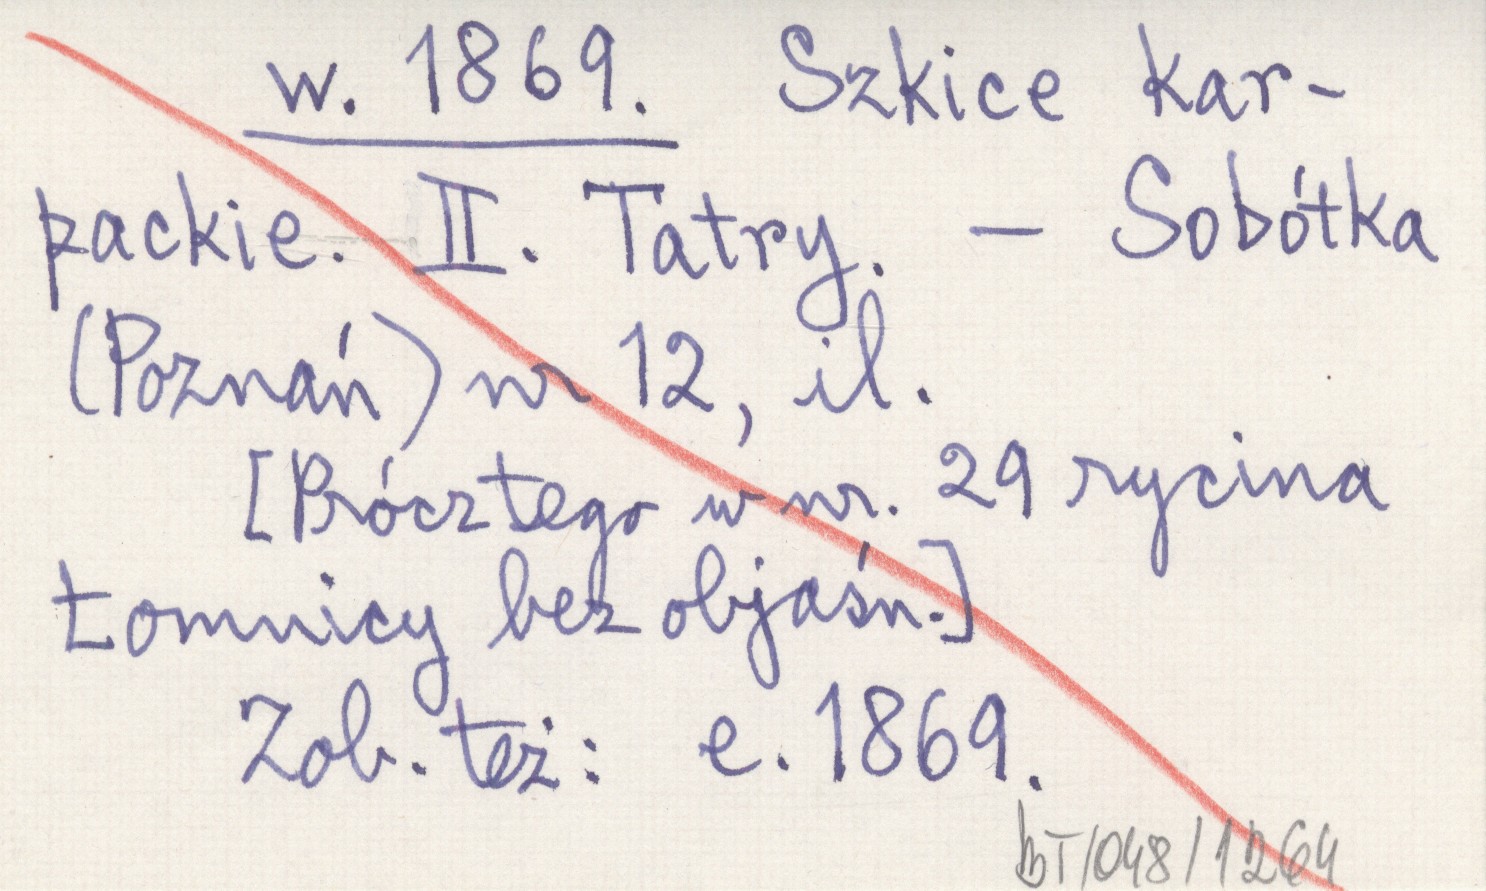 w. 1869. Szkice kar-
packie. II. Tatry. — Sobótka
(Poznań) nr 12, il.
[Prócz tego w nr. 29 rycina
Łomnicy bez objaśn.]
Zob. też: e. 1869.
bT/048/1264